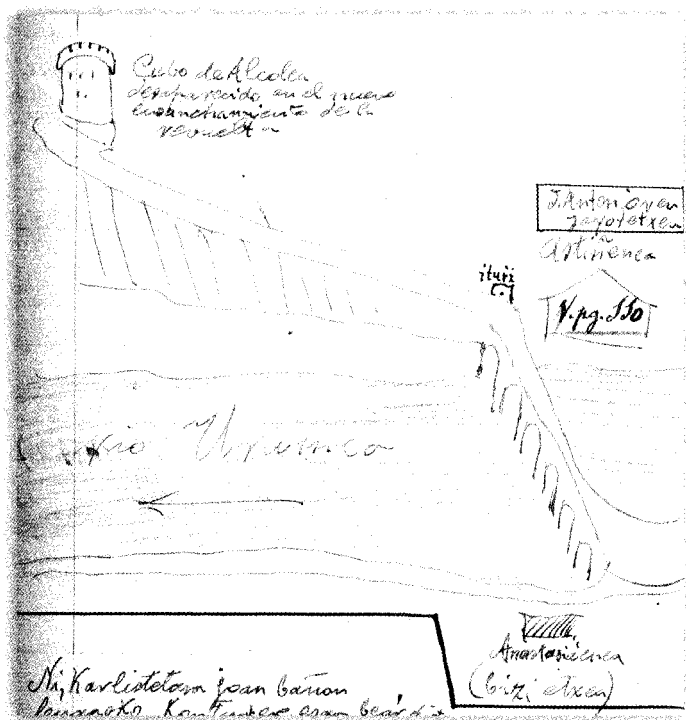 Cubo de Alcolea
desaparecido en el nuevo
ensanchamiento de la
revuelta
J. Antonioren
jayotetxea
Astiñenea
ituri
V. pg. 550
rio Urumea
Anastasiönea
(bizi etxea)
Ni, Karlistetara joan bañon
Kontuteo esan bear dit